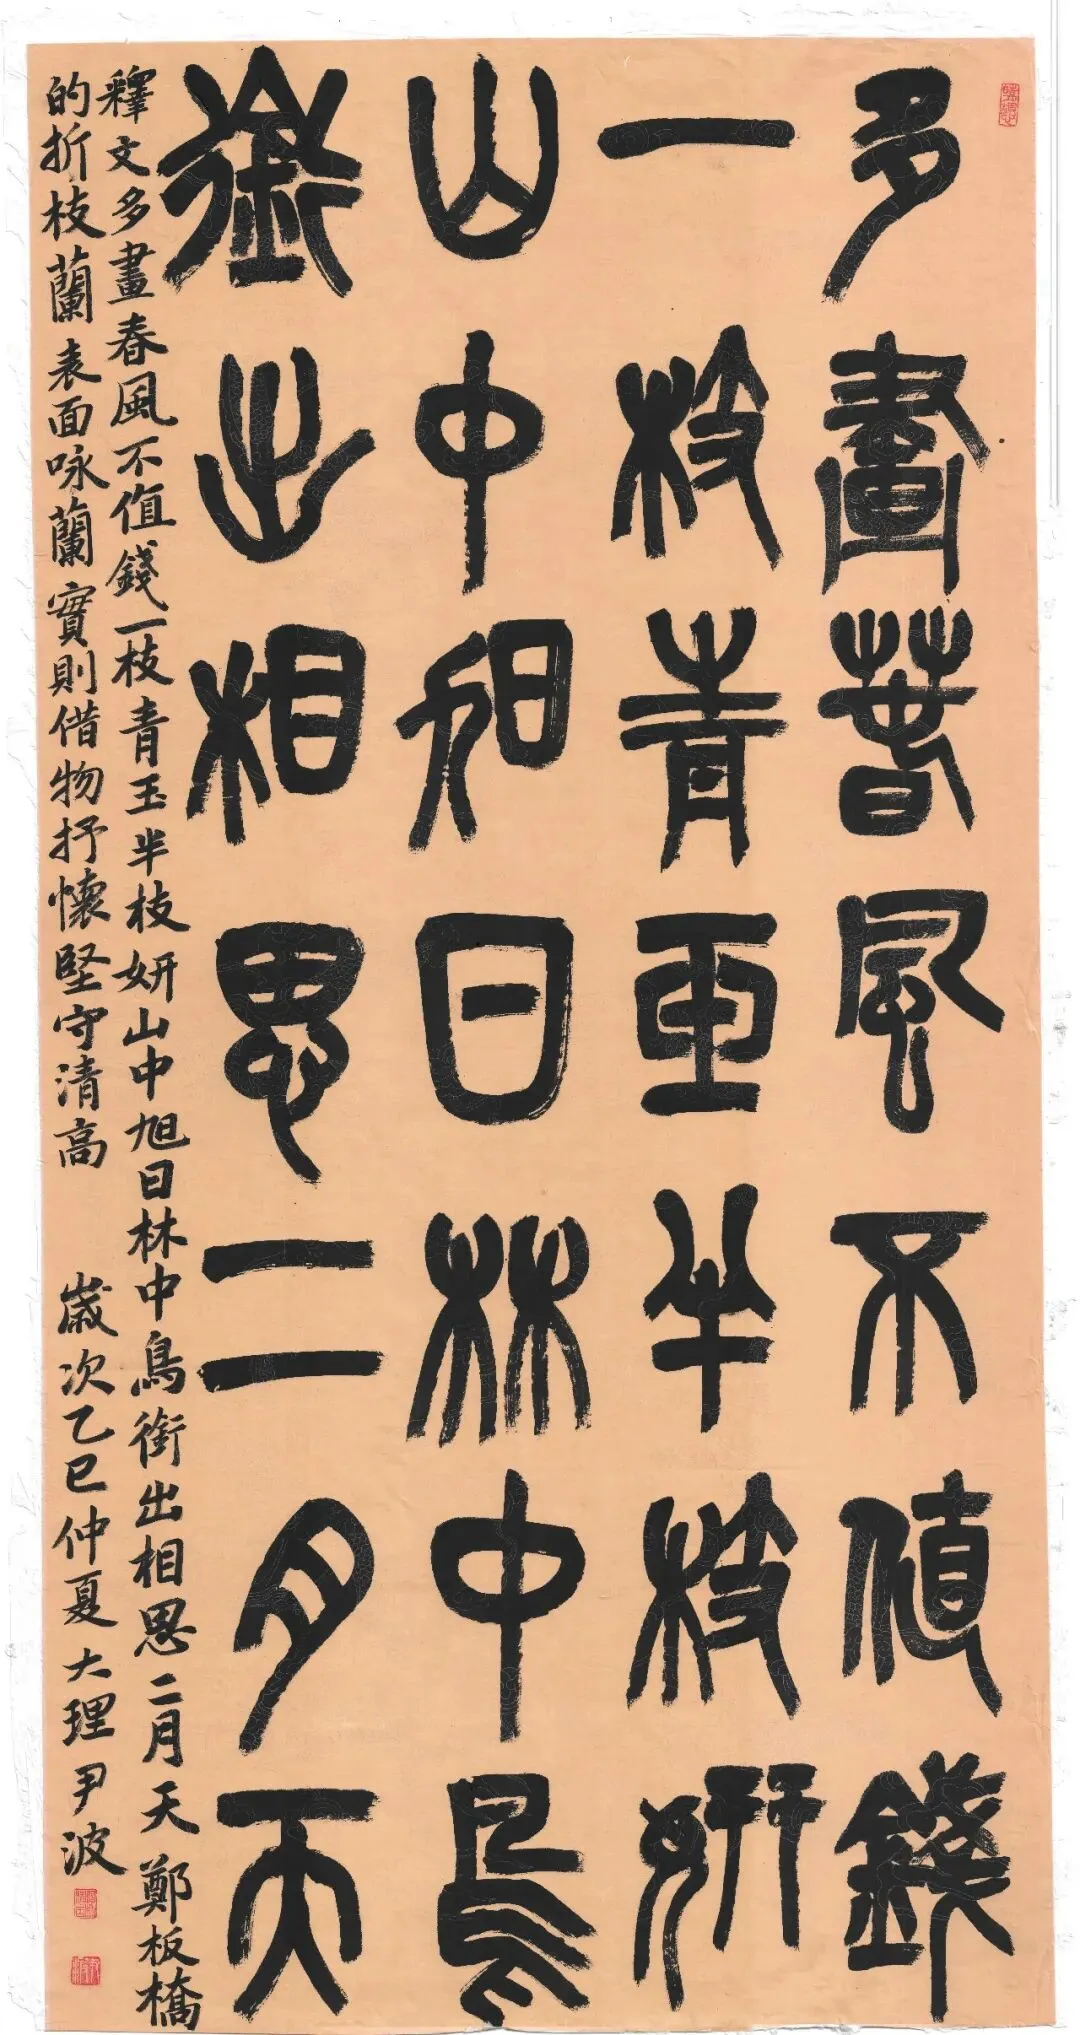 多畫春風不值錢
一枝青玉半枝妍
山中旭日林中鳥
銜出相思二月天
釋文多畫春風不值錢一枝青玉半枝妍山中旭日林中鳥銜出相思二月天鄭板橋
的折枝蘭表面咏蘭實則借物抒懷堅守清高 歲次乙巳仲夏大理尹波